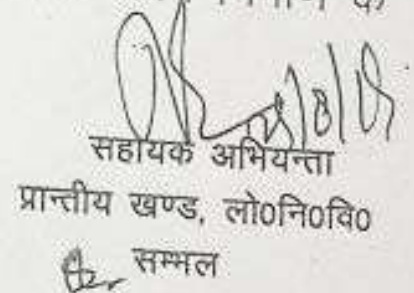 के
सहायक अभियन्ता
प्रान्तीय खण्ड, लो0नि0वि0
सम्भल